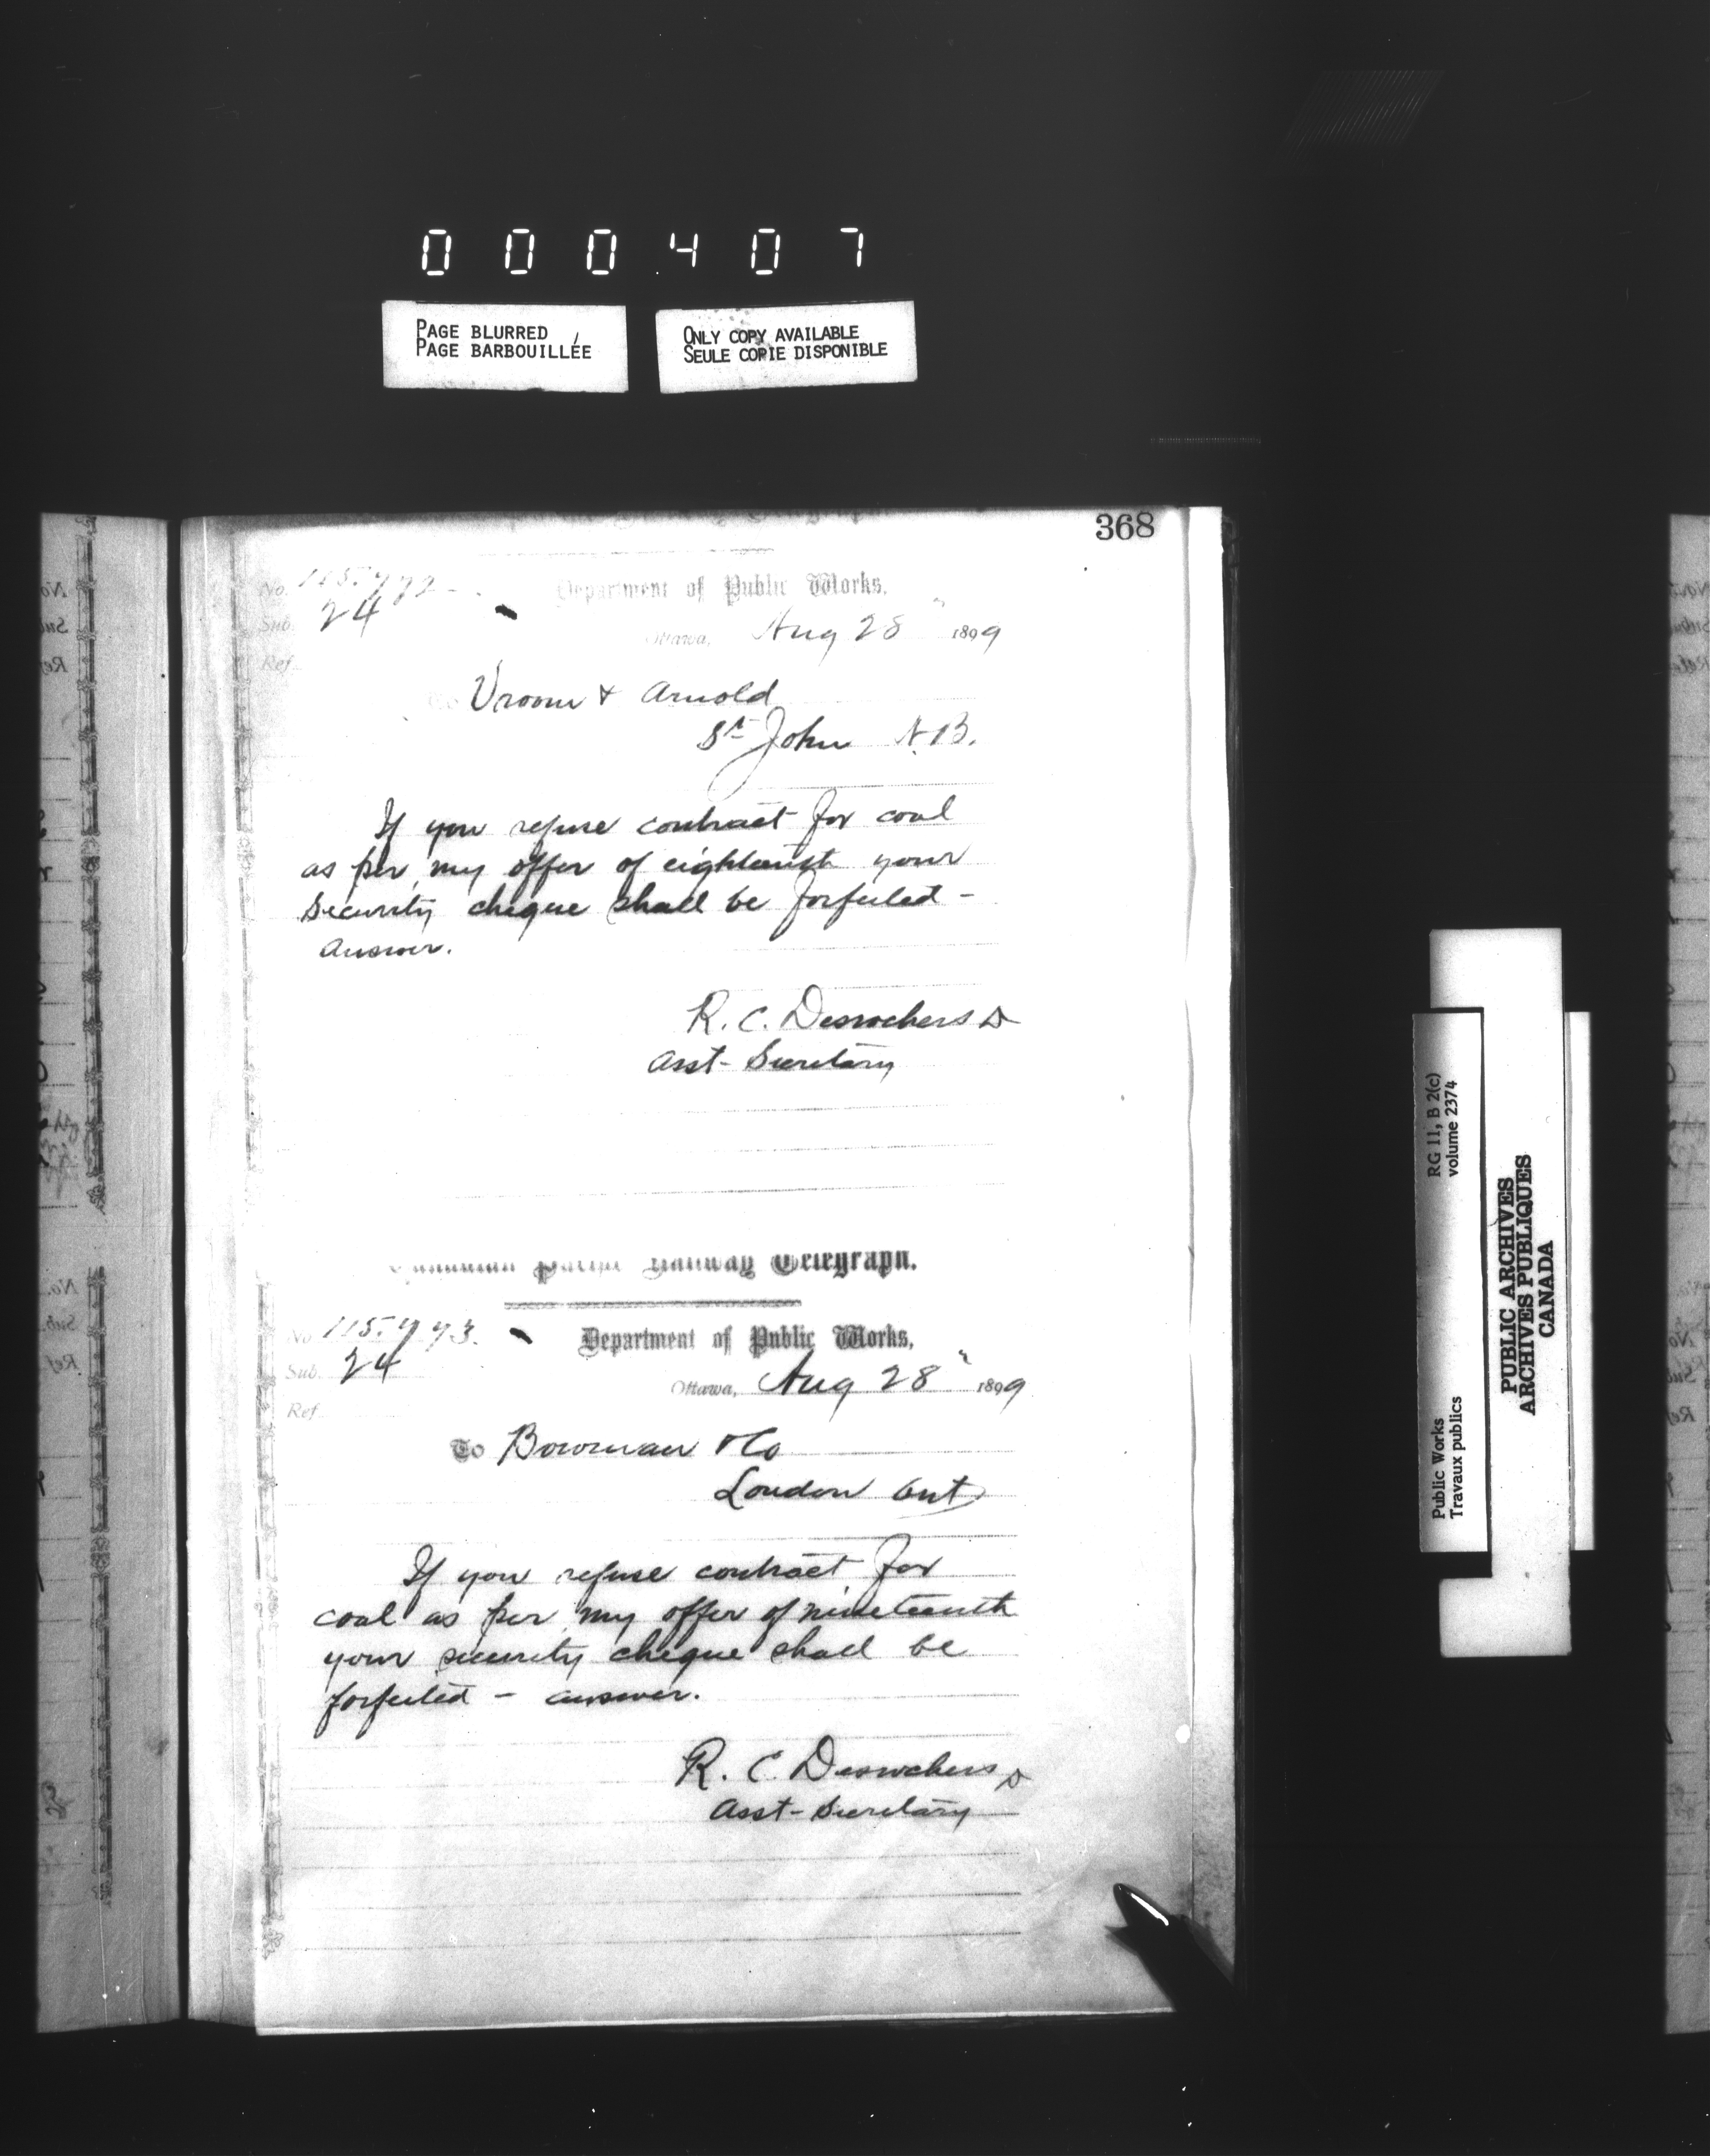 000407
PAGE BLURRED
PAGE BARBOUILLÉE
ONLY COPY AVAILABLE
SEULE COPIE DISPONIBLE
368
No. 115.772
Department of Public Works.
Sub. 24
Ottawa, Aug 28" 1899
Ref.
To Vroom & Arnold
St John N.B.
If you refuse contract for coal
as per my offer of eighteenth your
security cheque shall be forfeited -
answer.
R. C. Desrochers
Asst- Secretary
Canadian Pacific Railway Telegraph.
No. 115.773.
Department of Public Works,
Sub. 24
Ottawa, Aug 28" 1899
Ref.
To Bowman & Co
London Ont
If you refuse contract for
coal as per my offer of nineteenth
your security cheque shall be
forfeited - answer.
R. C. Desrochers
Asst- Secretary
RG 11, B 2(c)
volume 2374
Public Works
Travaux publics
PUBLIC ARCHIVES
ARCHIVES PUBLIQUES
CANADA